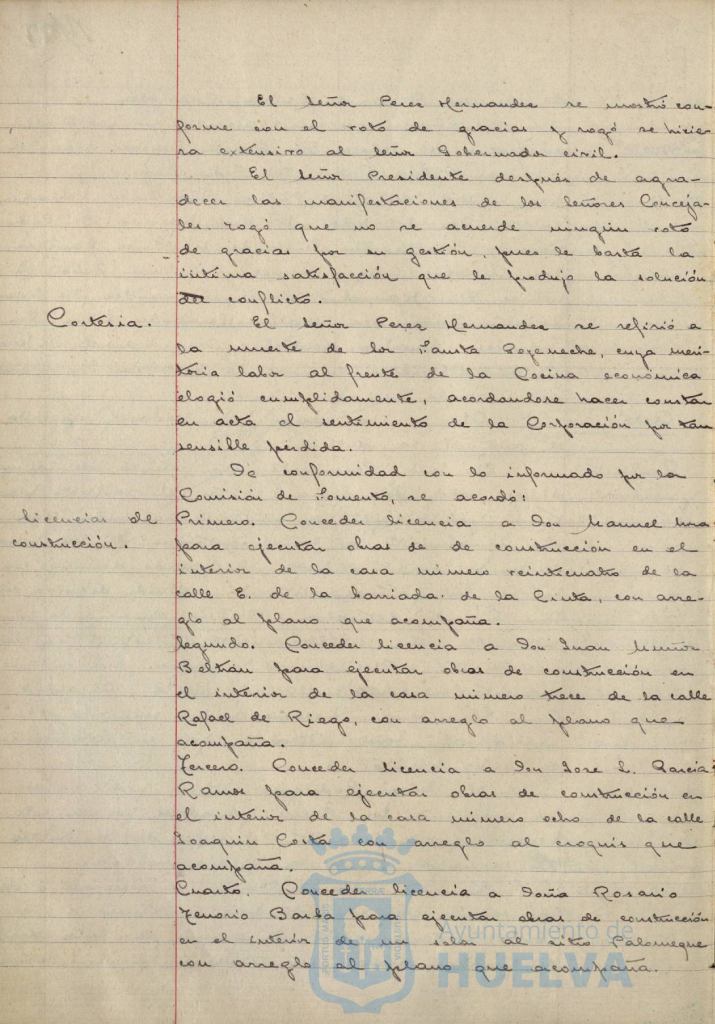 El Señor Perez Hernandez se mostró con-
forme con el voto de gracias y rogó se hicie-
ra extensivo al Señor Gobernador civil.
El Señor Presidente después de agra-
decer las manifestaciones de los Señores Conceja-
les rogó que no se acuerde ningún voto
de gracias por su gestión, pues le basta la
íntima satisfacción que le produjo la solución
del conflicto.
Cortesia.
El Señor Perez Hernandez se refirió a
la muerte de Sor Fausta, cuya meri-
toria labor al frente de la Cocina económica
elogió cumplidamente, acordandose hacer constar
en acta el sentimiento de la Corporación por tan
sensible pérdida.
De conformidad con lo informado por la
Comisión de Fomento, se acordó:
Licencias de
construcción.
Primero. Conceder licencia a Don Manuel
para ejecutar obras de de construcción en el
interior de la casa número veinticuatro de la
calle E. de la barriada de la Cinta, con arre-
glo al plano que acompaña.
Segundo. Conceder licencia a Don Juan Muñoz
Beltrán para ejecutar obras de construcción en
el interior de la casa número trece de la calle
Rafael de Riego, con arreglo al plano que
acompaña.
Tercero. Conceder licencia a Don Jose L. García
Ramos para ejecutar obras de construcción en
el interior de la casa número ocho de la calle
Joaquin Costa con arreglo al croquis que
acompaña.
Cuarto. Conceder licencia a Doña Rosario
Tenorio Barba para ejecutar obras de construcción
en el interior de un solar al sitio Palomeque
con arreglo al plano que acompaña.
Ayuntamiento de
HUELVA